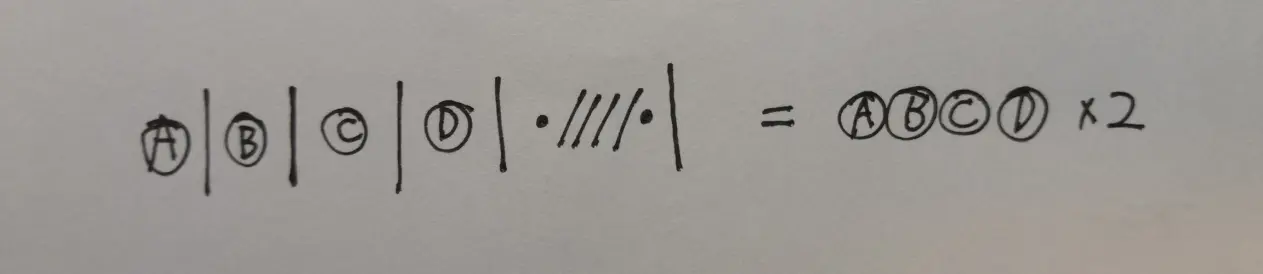 Ⓐ | Ⓑ | Ⓒ | Ⓓ | ·////· | = ⒶⒷⒸⒹ ×2